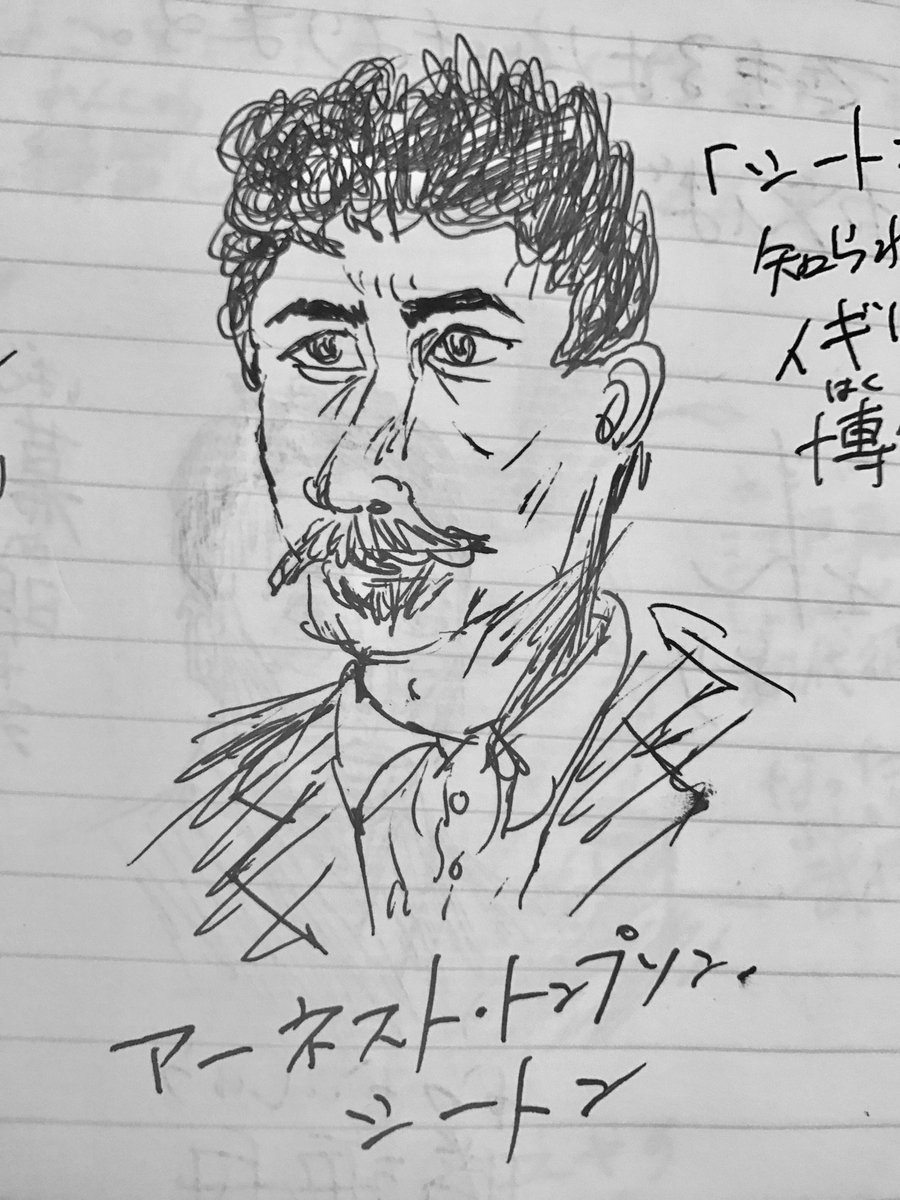 「シート
知られ
イギ
はく
博
アーネスト・トンプソン・
シートン